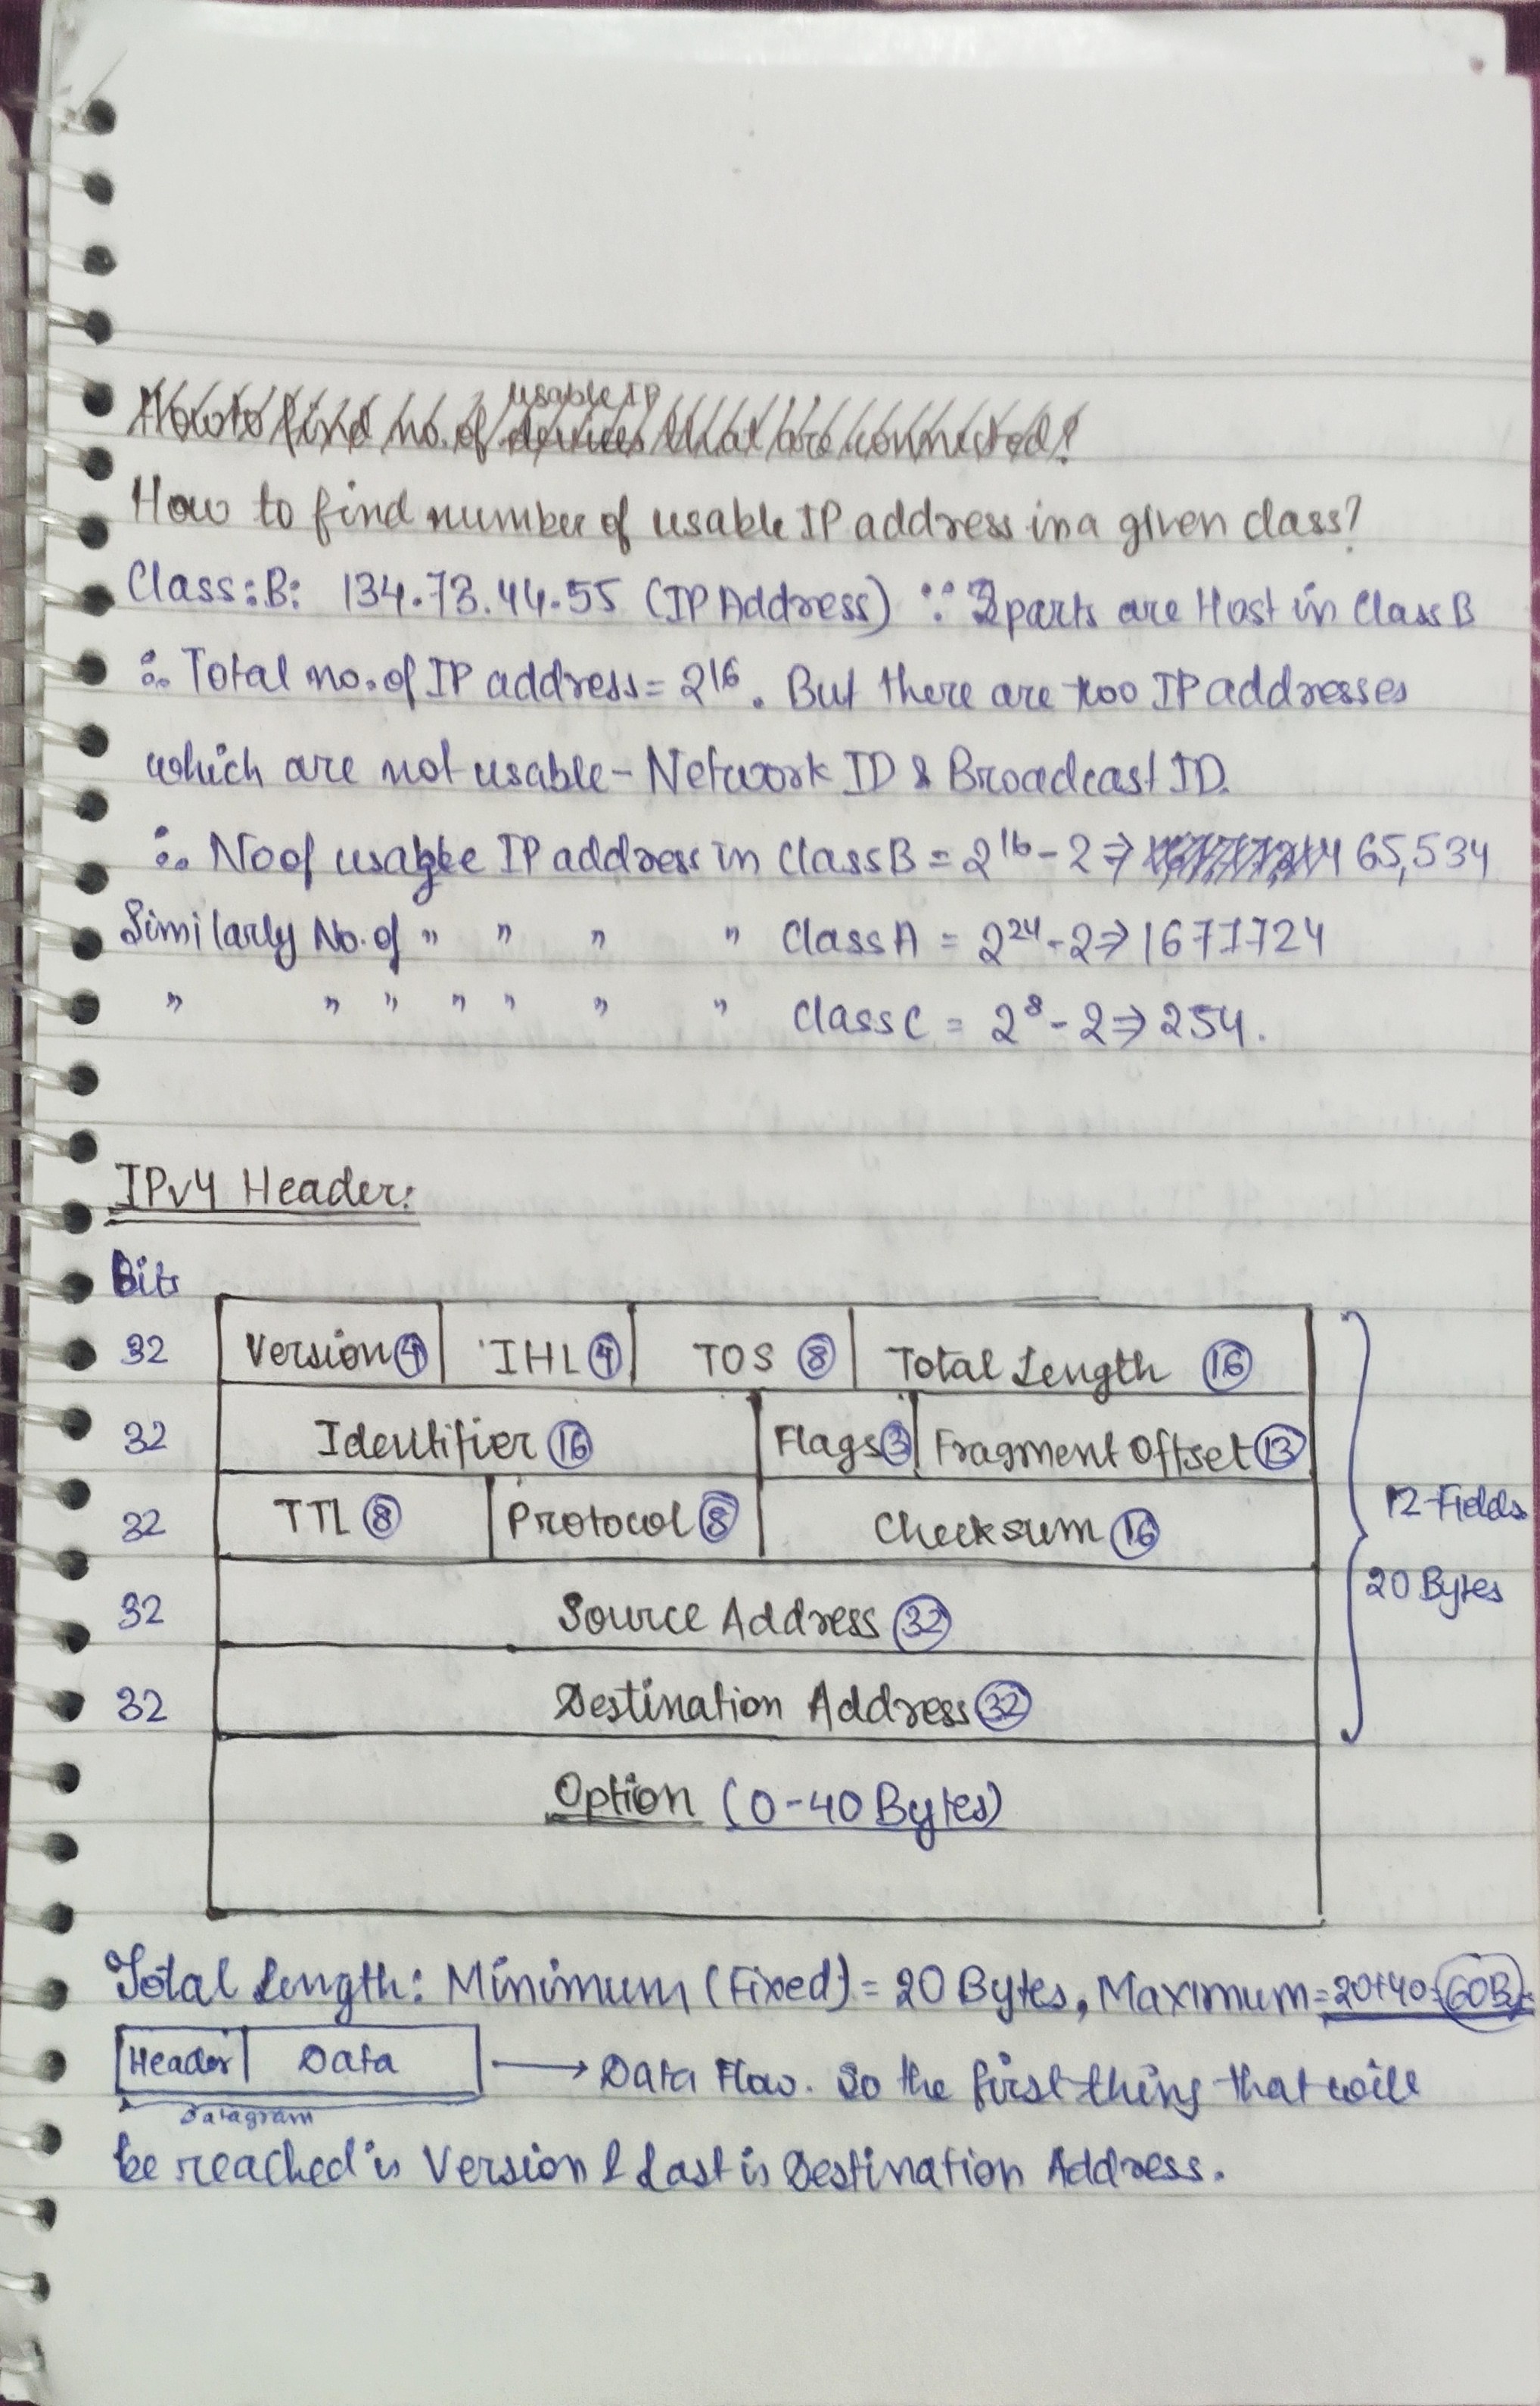 How to find no. of usable IP devices that are connected?
How to find number of usable IP address in a given class?
Class:B: 134.73.44.55 (IP Address) ∵ 2 parts are Host in Class B
∴ Total no. of IP address = 2¹⁶. But there are two IP addresses
which are not usable - Network ID & Broadcast ID.
∴ No of usable IP address in Class B = 2¹⁶ - 2 ⇒ 65,534
Similarly No. of " " " " Class A = 2²⁴ - 2 ⇒ 1677724
" " " " " " " Class C = 2⁸ - 2 ⇒ 254.
IPv4 Header:
Bits
32 Version 4 IHL 4 TOS 8 Total Length 16
32 Identifier 16 Flags 3 Fragment Offset 13
32 TTL 8 Protocol 8 Checksum 16
12 Fields
20 Bytes
32 Source Address 32
32 Destination Address 32
Option (0-40 Bytes)
Total Length: Minimum (Fixed) = 20 Bytes, Maximum = 20+40 = 60B
Header Data → Data Flow. So the first thing that will
Datagram
be reached is Version & Last is Destination Address.